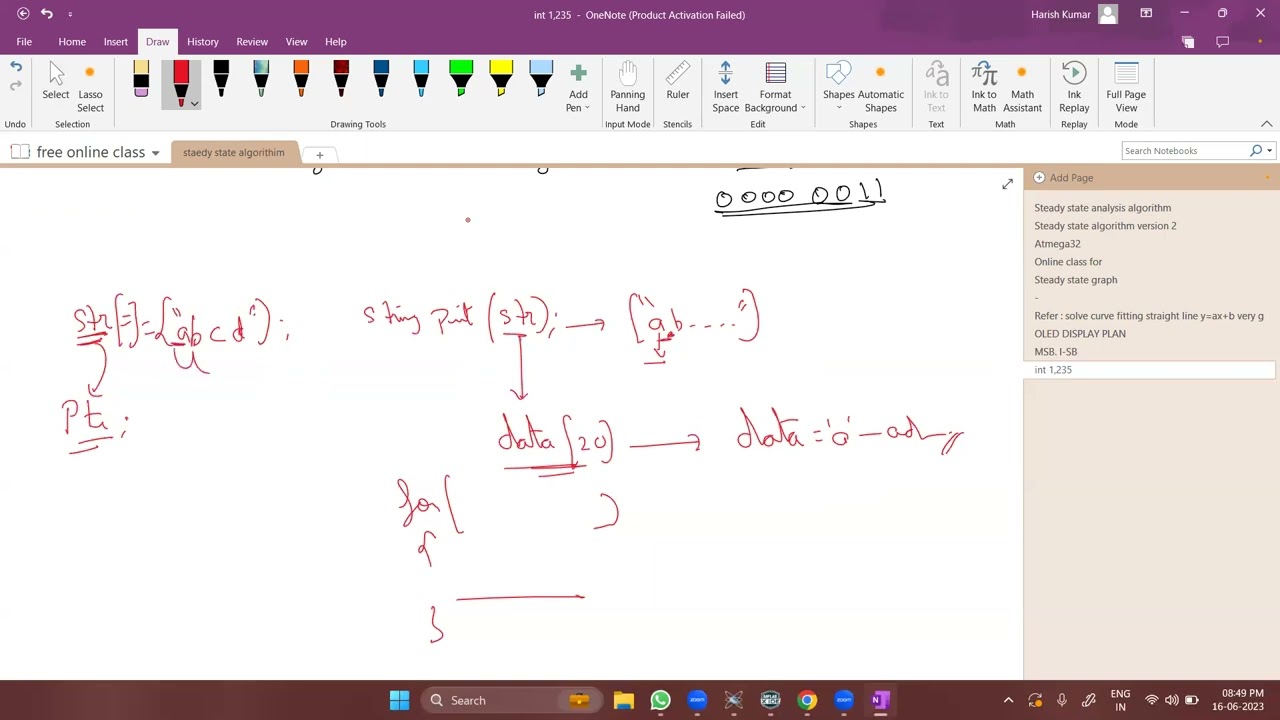 int 1,235 - OneNote (Product Activation Failed)
Harish Kumar
File Home Insert Draw History Review View Help
Select
Lasso Select
Add Pen
Panning Hand
Ruler
Insert Space
Format Background
Shapes
Automatic Shapes
Ink to Text
Ink to Math
Math Assistant
Ink Replay
Full Page View
Undo Selection Drawing Tools Input Mode Stencils Edit Shapes Text Math Replay Mode
free online class
staedy state algorithim
Search Notebooks
Add Page
Steady state analysis algorithm
Steady state algorithm version 2
Atmega32
Online class for
Steady state graph
-
Refer : solve curve fitting straight line y=ax+b very g
OLED DISPLAY PLAN
MSB. I-SB
int 1,235
0000 0011
str[-]={"abcd"};
string (str); → ["ab...."]
data[20] → data='a'
for( )
{
}
Search
ENG
IN
08:49 PM
16-06-2023